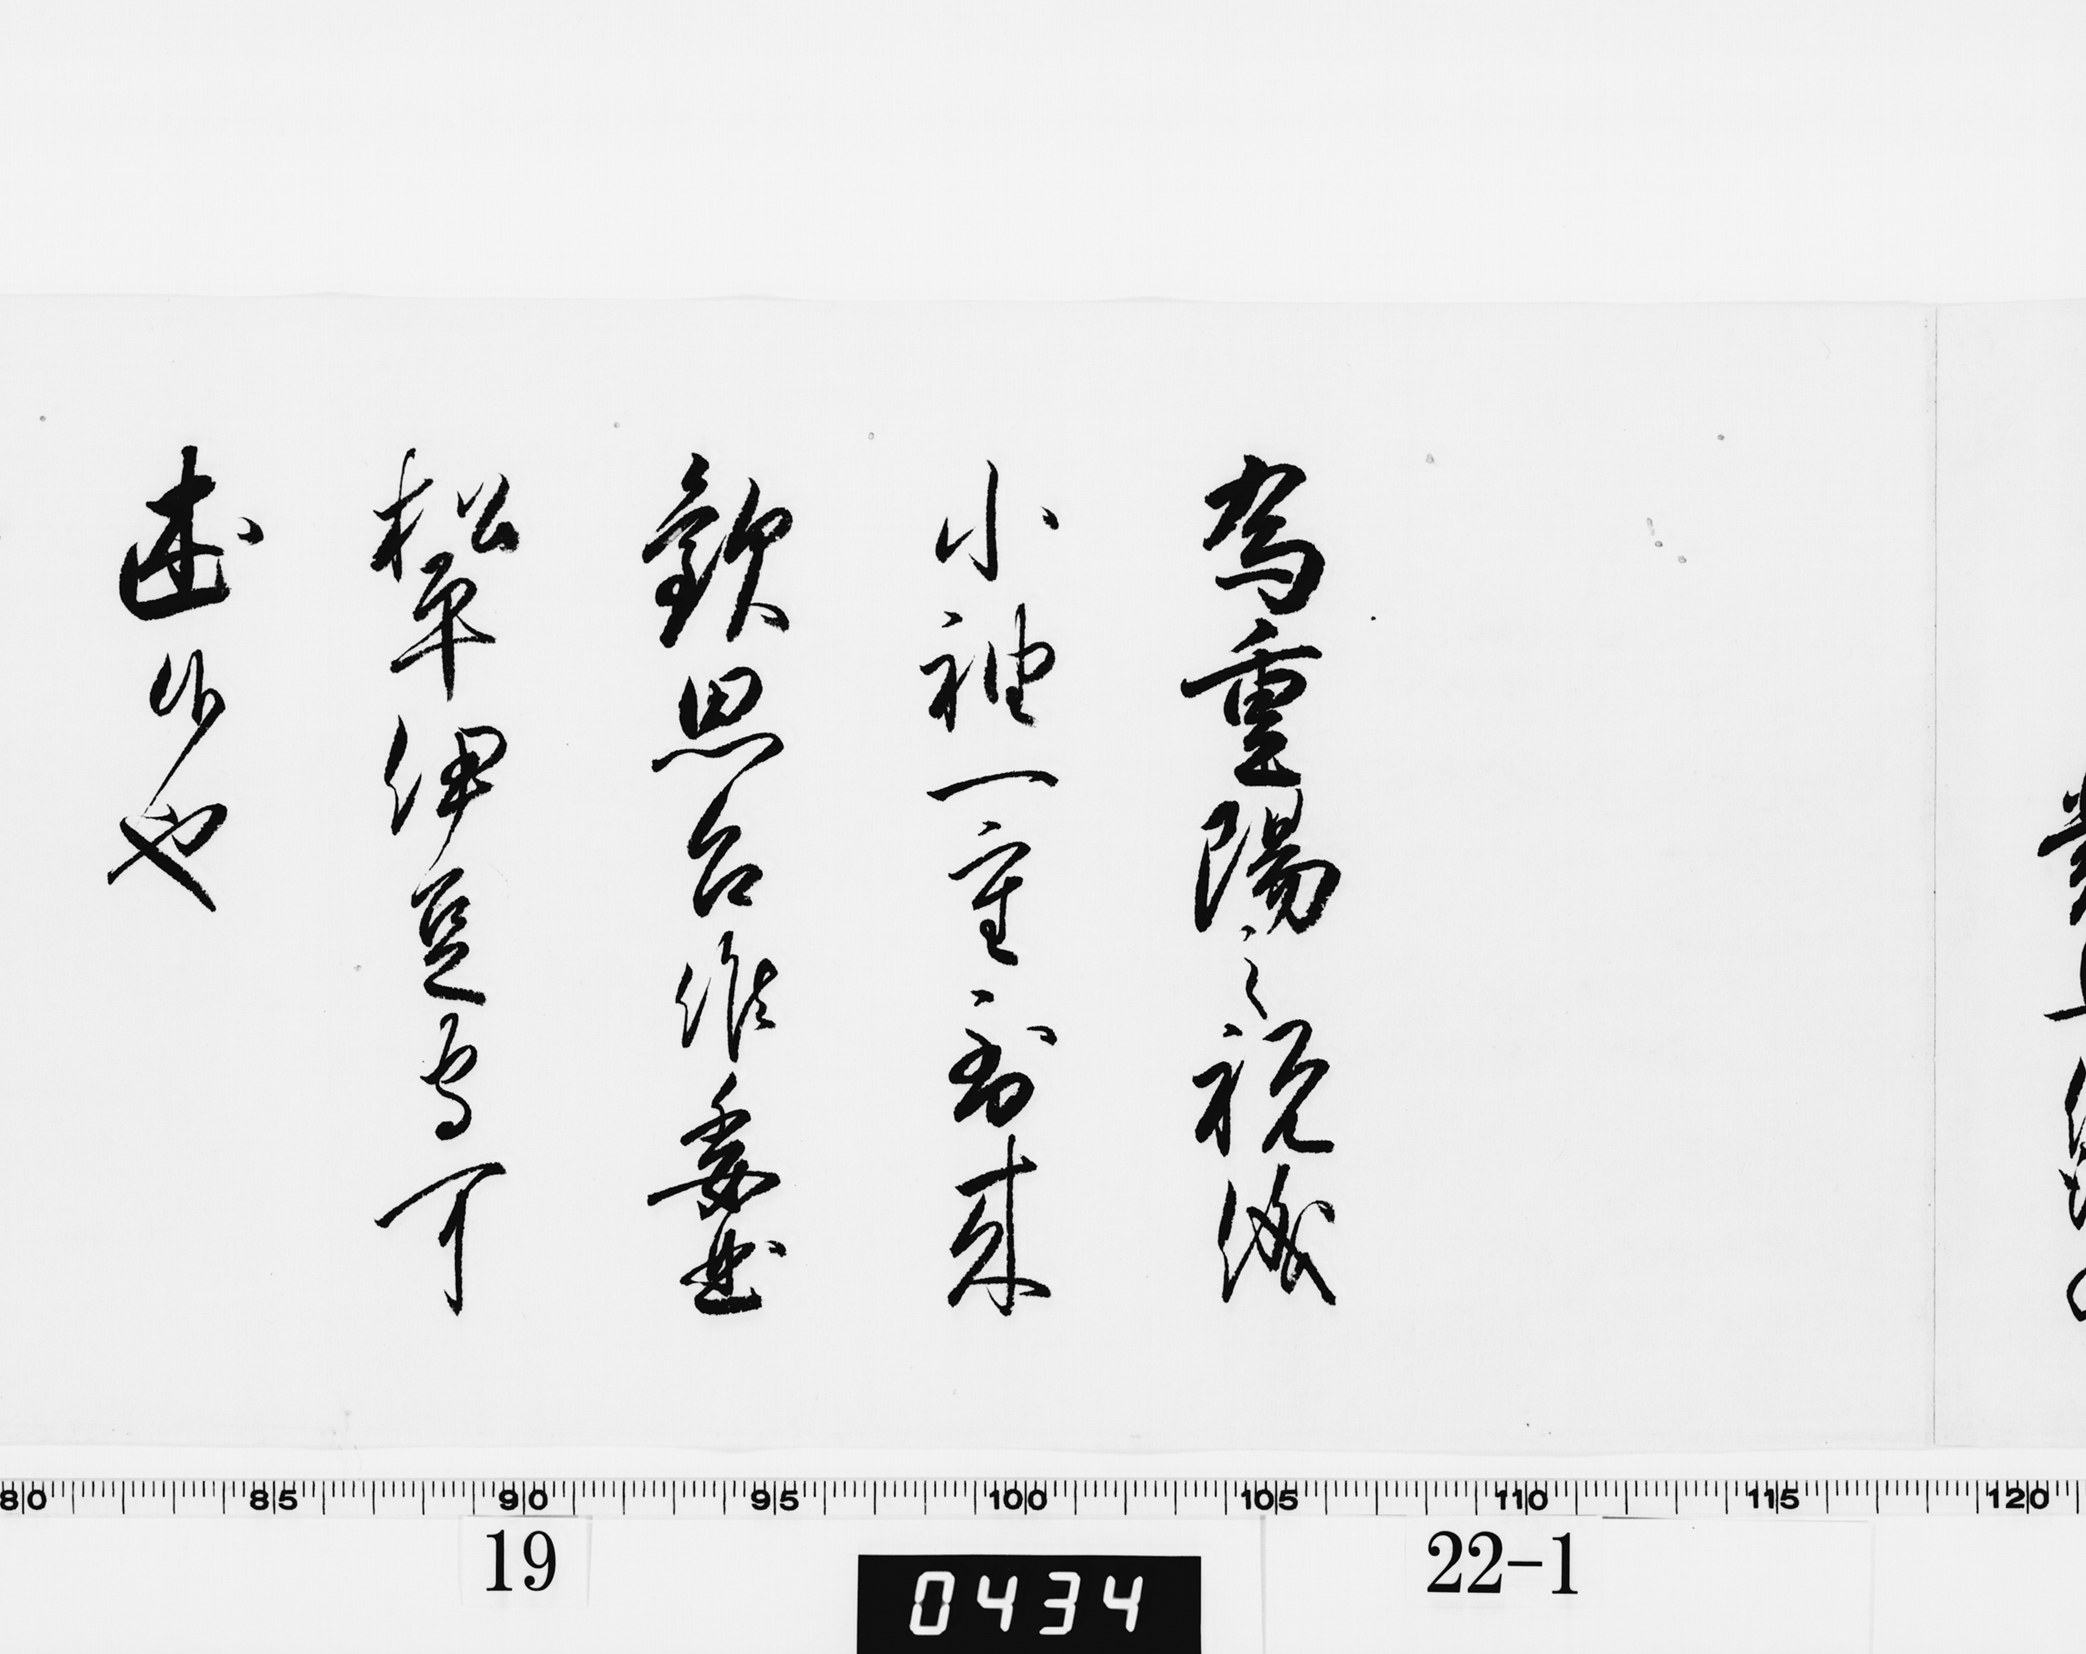 為重陽之祝儀
小袖一重到来
歓思召候委曲
松平伊豆守可
述候也
80 85 90 95 100 105 110 115 120
19
0434
22-1